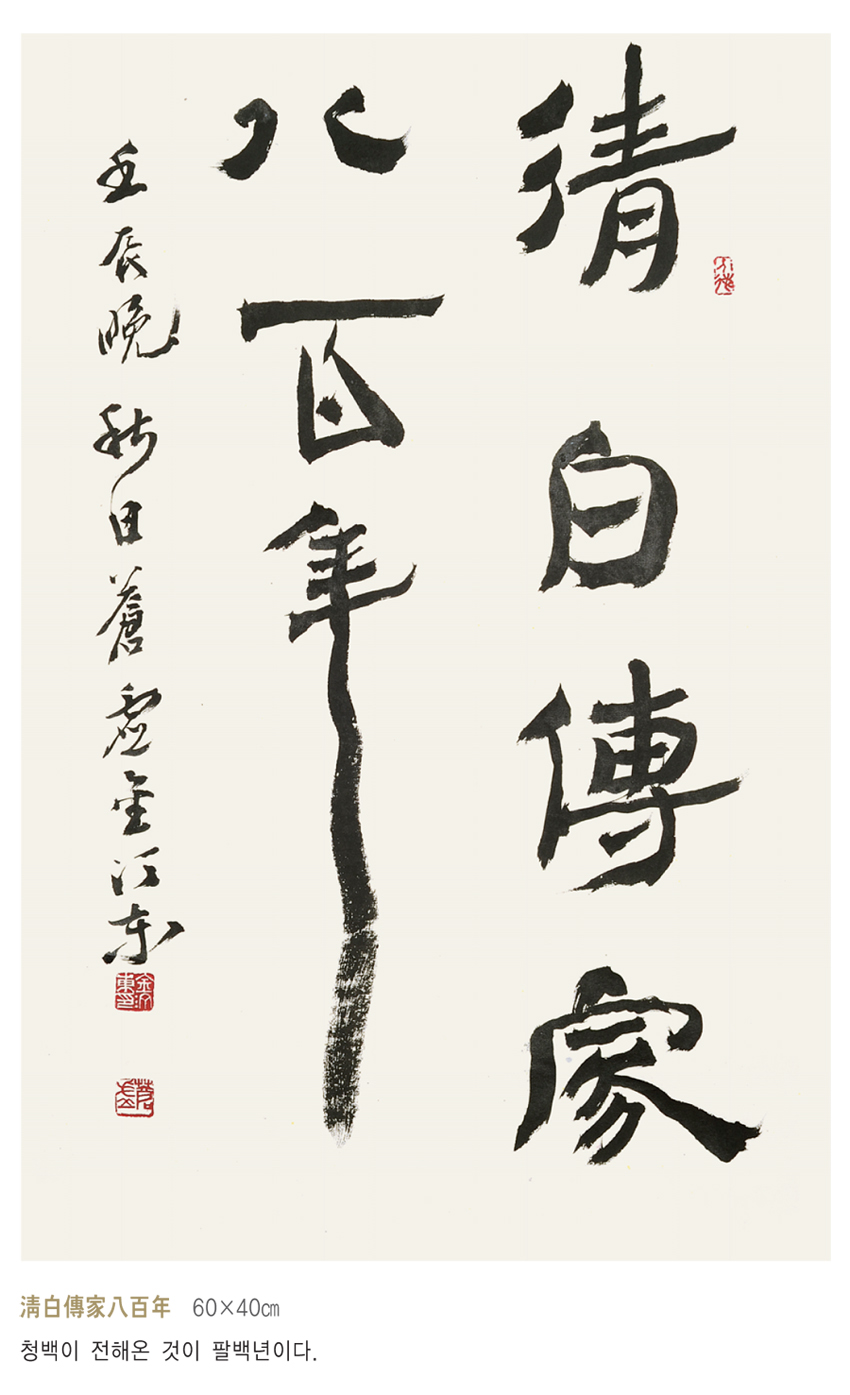 淸白傳家
八百年
壬辰晚秋日蒼虛金河東
淸白傳家八百年 60×40㎝
청백이 전해온 것이 팔백년이다.